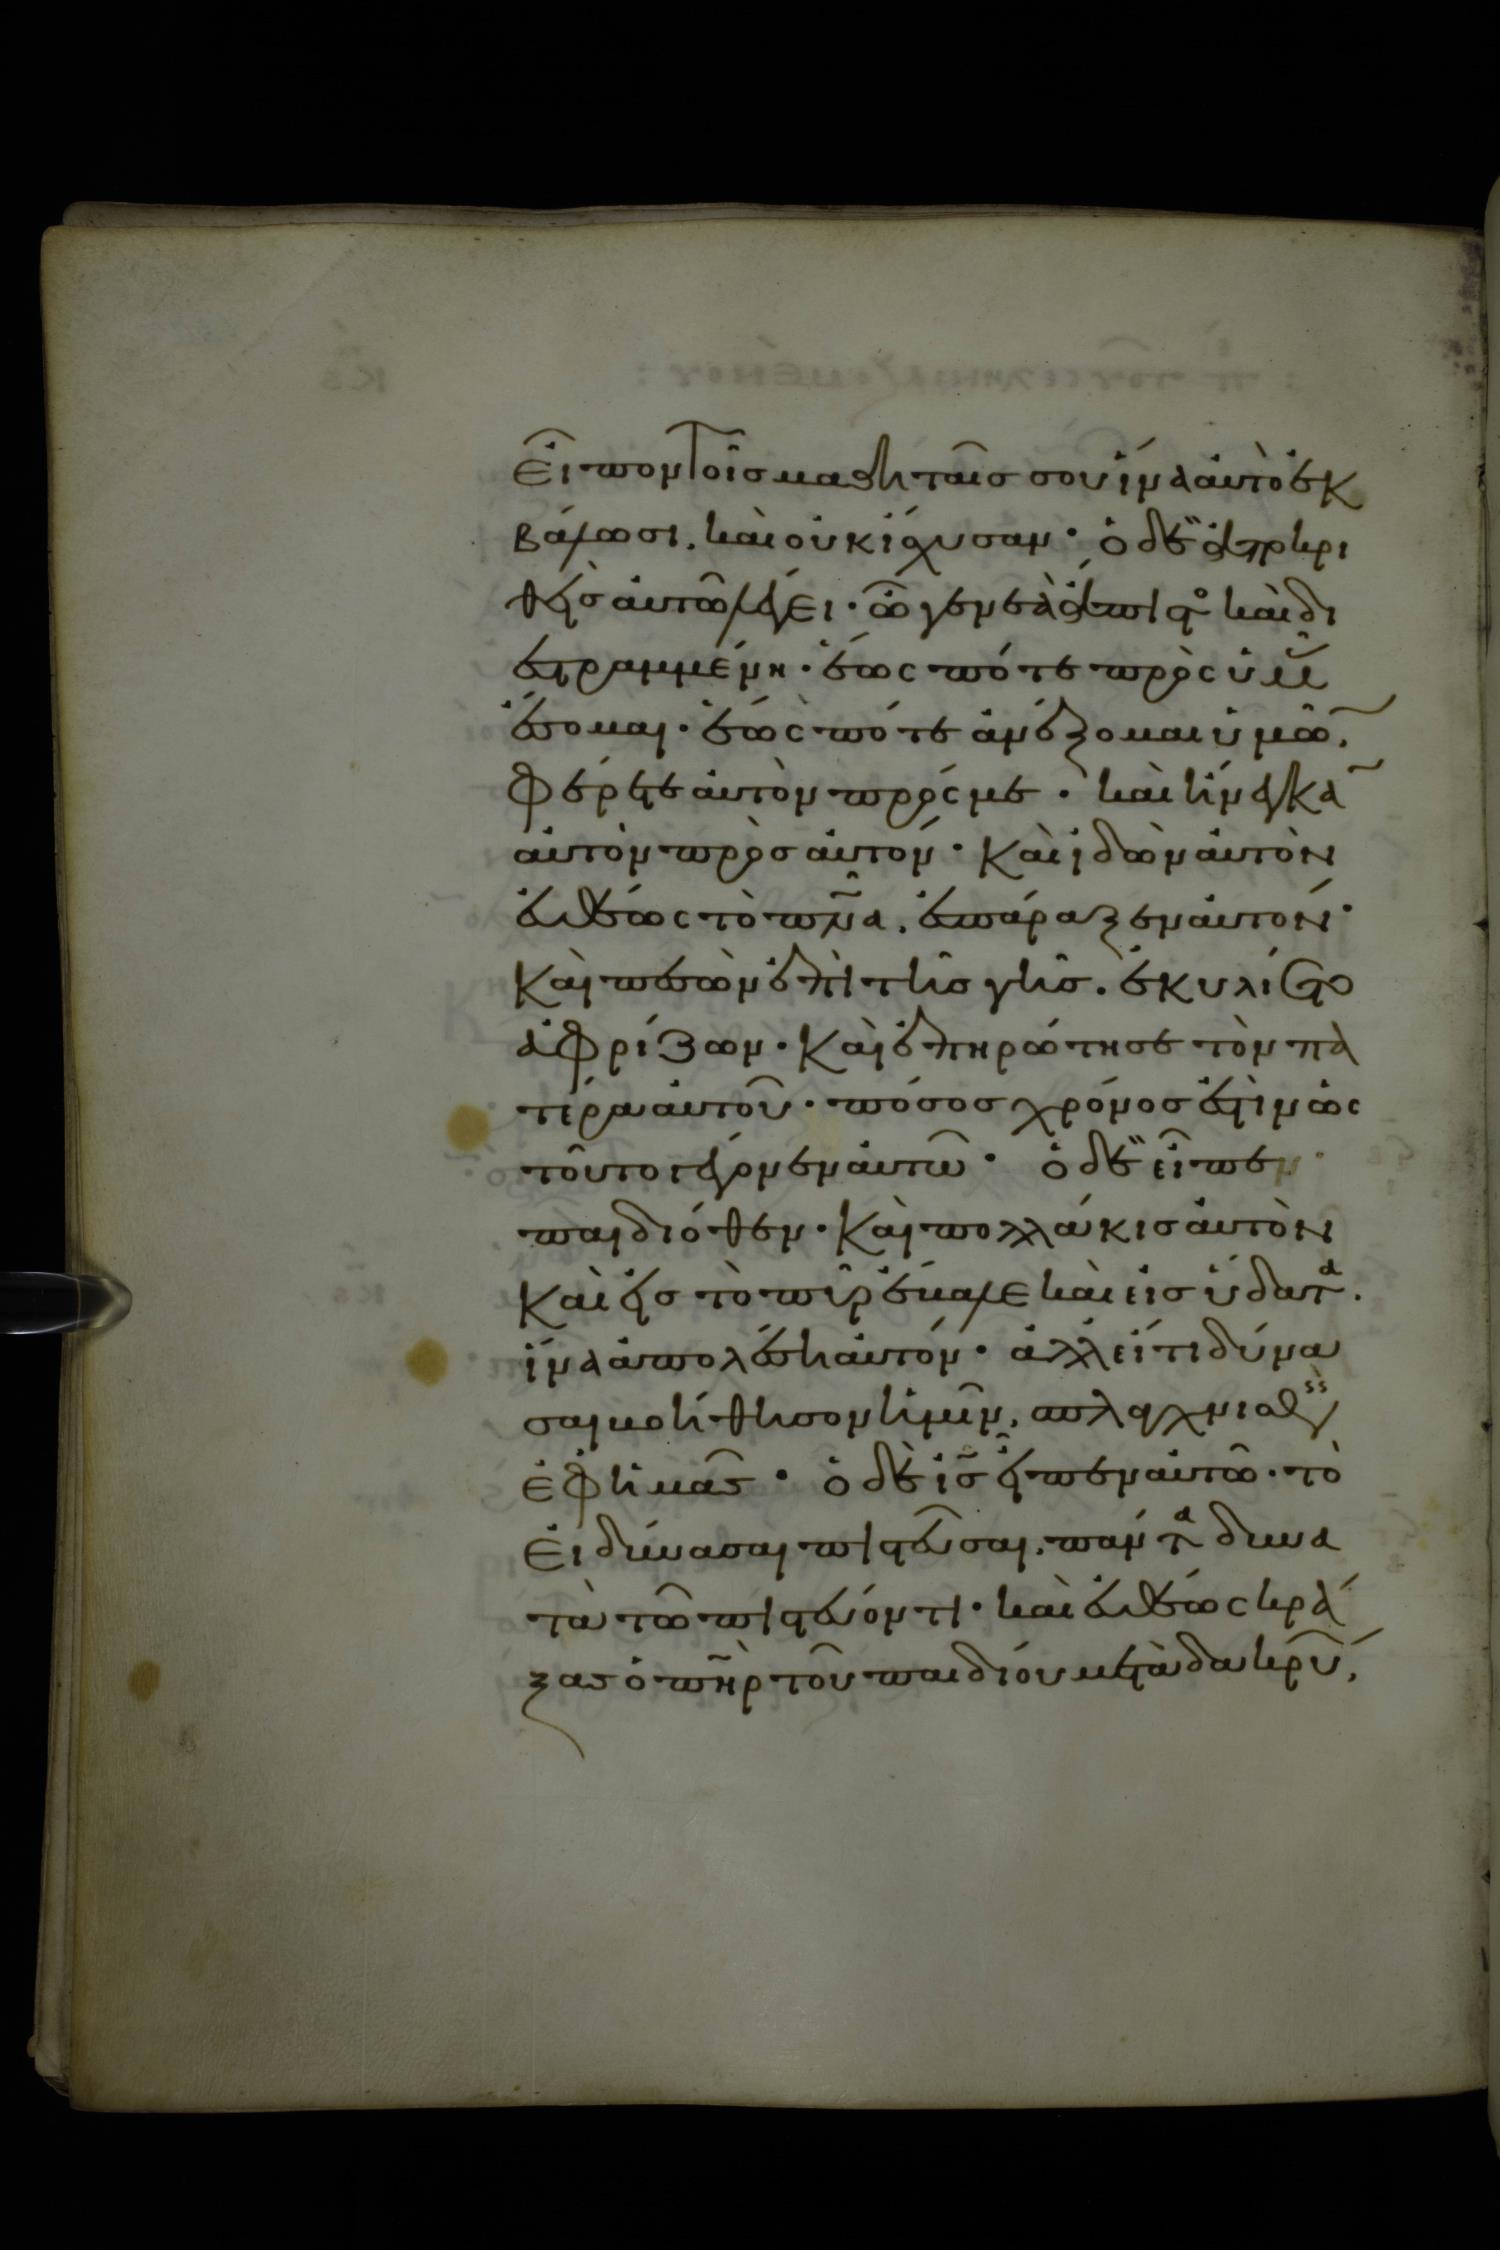 εἶπον τοῖς μαθηταῖς σου ἵνα αὐτὸ ἐκ
βάλωσι. καὶ οὐκ ἴσχυσαν· ὁ δὲ ἀποκρι
θεὶς αὐτῶ λέγει· ὦ γενεὰ ἄπιστο καὶ δι
εστραμμένη· ἕως πότε πρὸς ὑμᾶ
ἔσομαι· ἕως πότε ἀνέξομαι ὑμῶ.
φέρετε αὐτὸν πρός με· καὶ ἤνεγκα
αὐτὸν πρὸς αὐτόν· καὶ ἰδὼν αὐτὸν
εὐθέως τὸ πνᾶ. ἐσπάραξεν αὐτόν·
καὶ πεσὼν ἐπὶ τῆς γῆς. ἐκυλίετο
ἀφρίζων· καὶ ἐπηρώτησε τὸν πα
τέρα αὐτοῦ· πόσος χρόνος ἐστὶν ὡς
τοῦτο γέγονεν αὐτῶ· ὁ δὲ εἶπεν
παιδιόθεν· καὶ πολλάκις αὐτὸν
καὶ εἰς τὸ πῦρ ἔβαλε καὶ εἰς ὕδατα.
ἵνα ἀπολέση αὐτόν· ἀλλ εἴ τι δύνα
σαι βοήθησον ἡμῖν. σπλαγχνισθεὶς
ἐφ ἡμᾶς· ὁ δὲ ἰς εἶπεν αὐτῶ· τὸ
εἰ δύνασαι πιστεῦσαι. πάντα δυνα
τὰ τῶ πιστεύοντι· καὶ εὐθέως κρά
ξας ὁ πηρ τοῦ παιδίου μετὰ δακρύ.